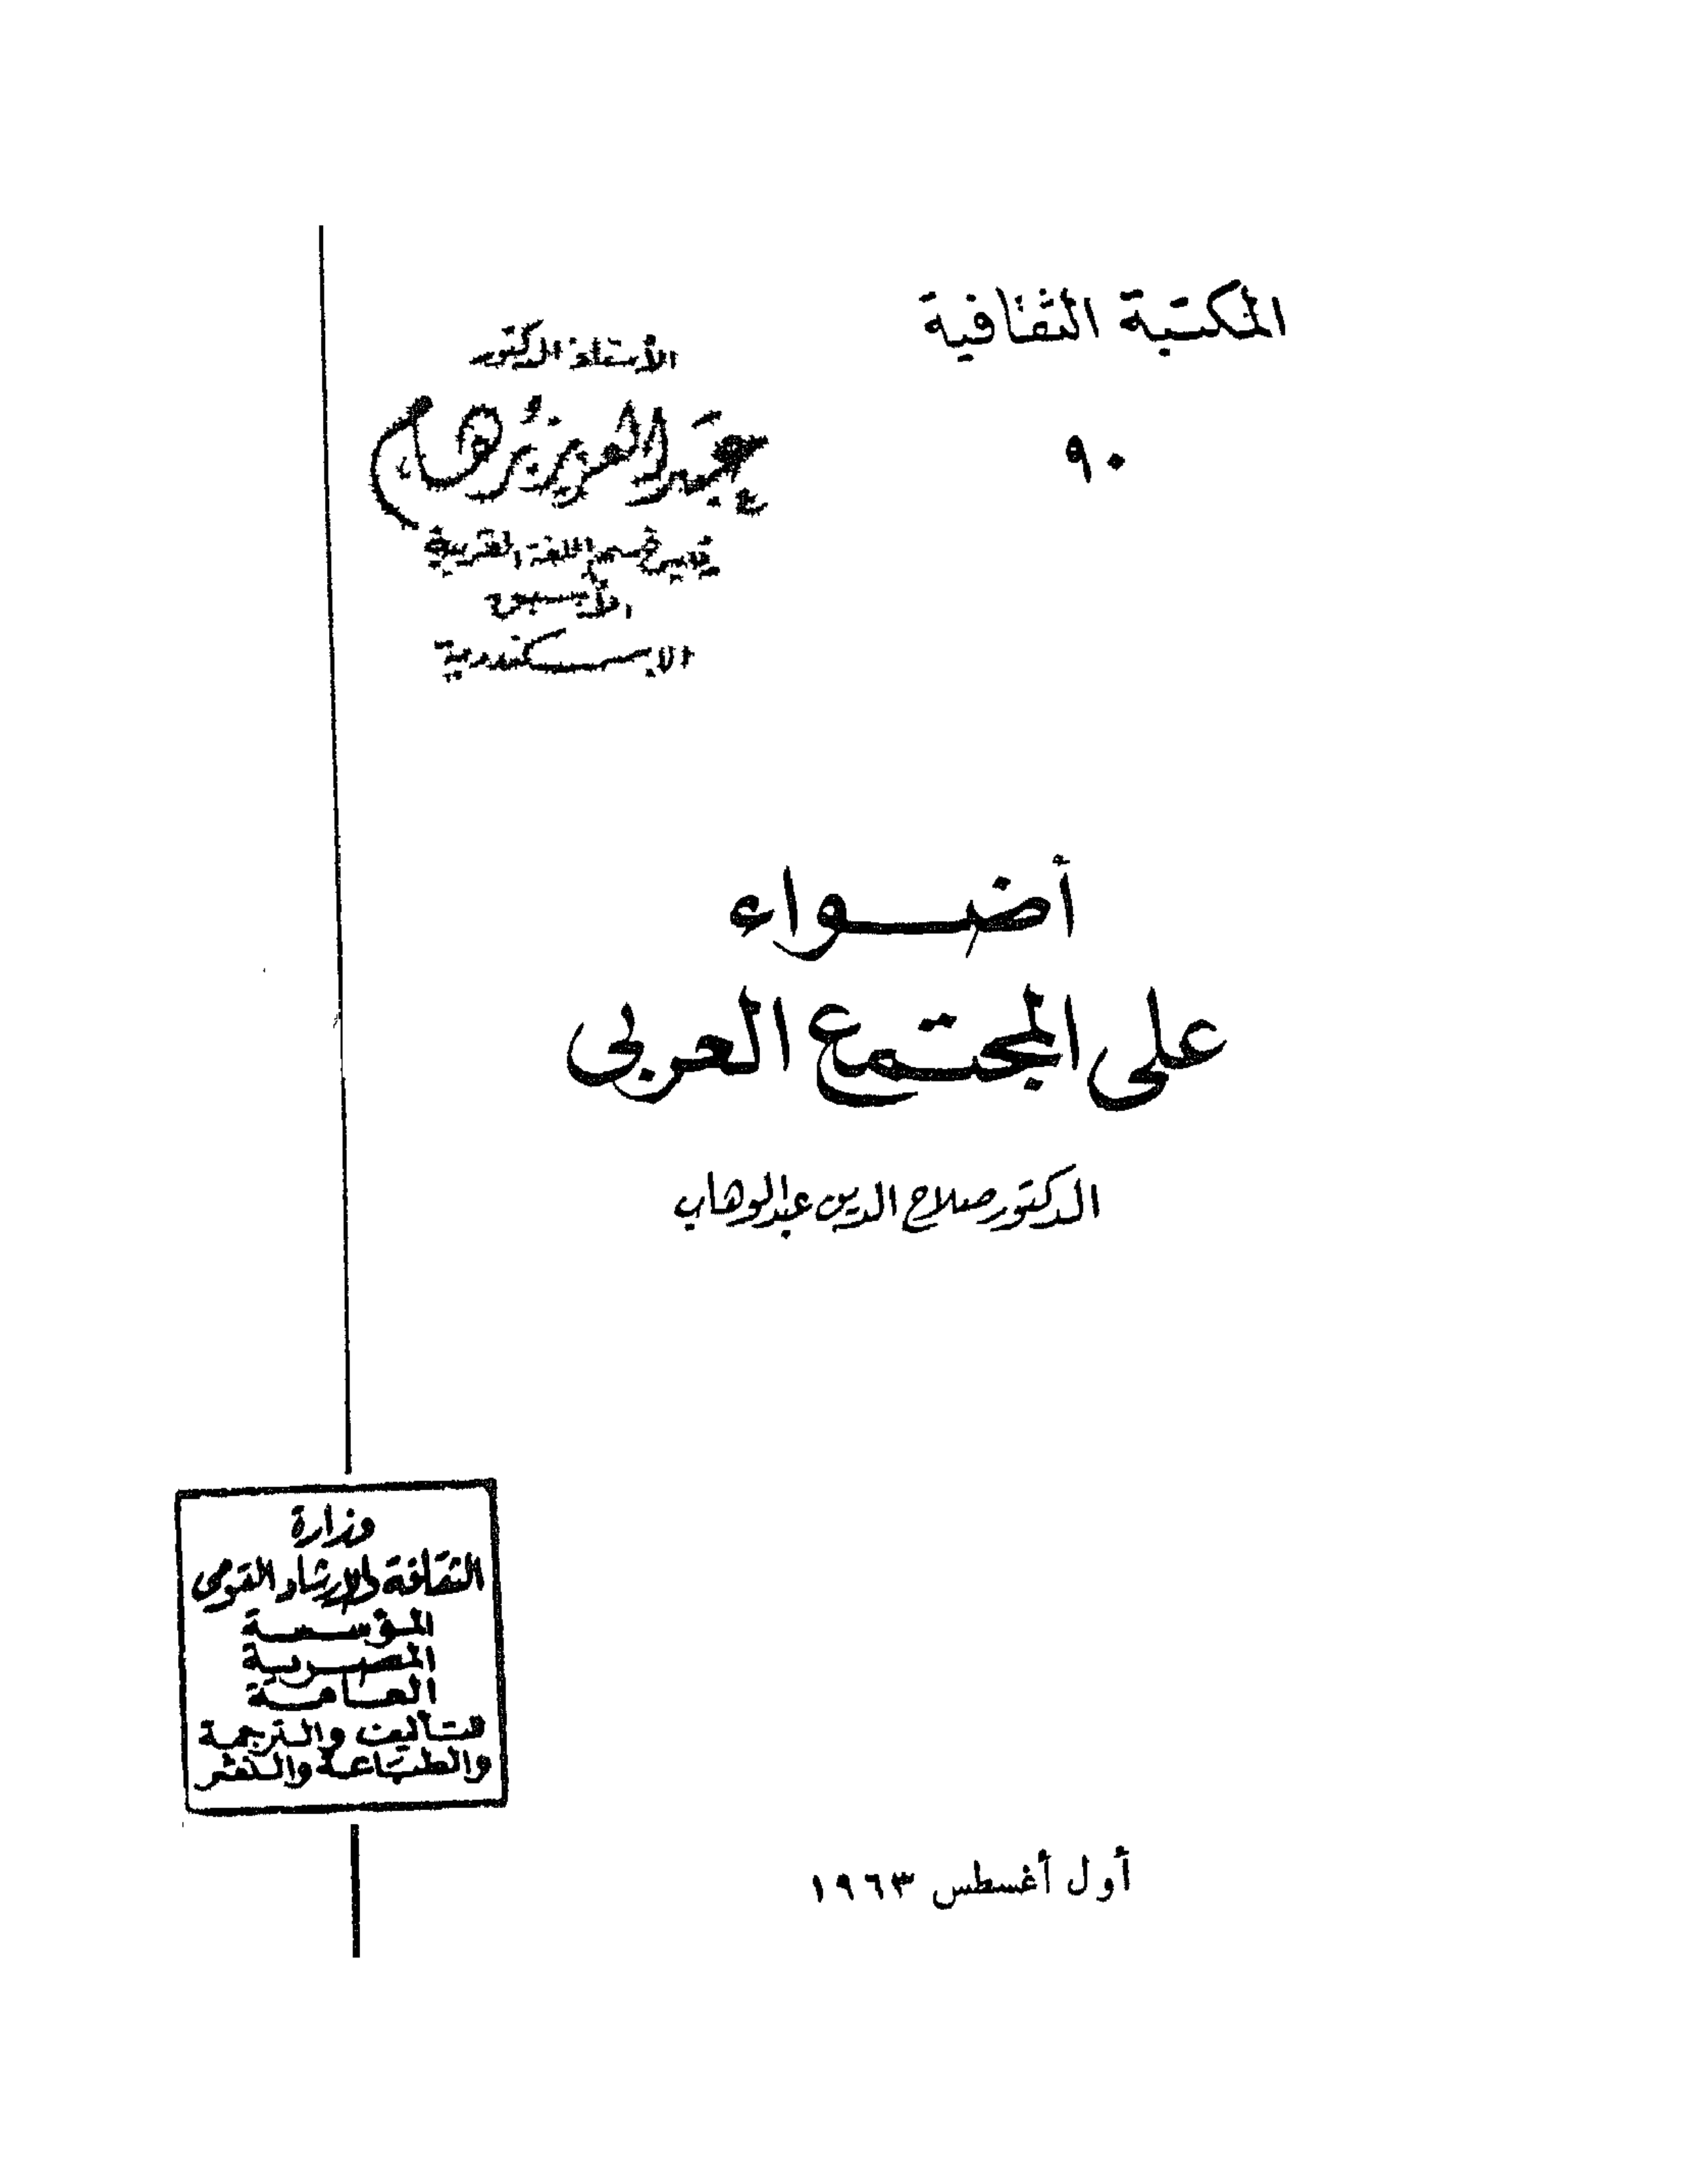 المكتبة الثقافية
٩٠
الأستاذ الدكتور
عبد العزيز برهام
اللغة
الاسكندرية
أضواء
على المجتمع العربى
الدكتور صلاح الدين عبد الوهاب
وزارة
الثقافة والإرشاد القومى
المؤسسة
المصرية
العامة
للتأليف والترجمة
والطباعة والنشر
أول أغسطس ١٩٦٣